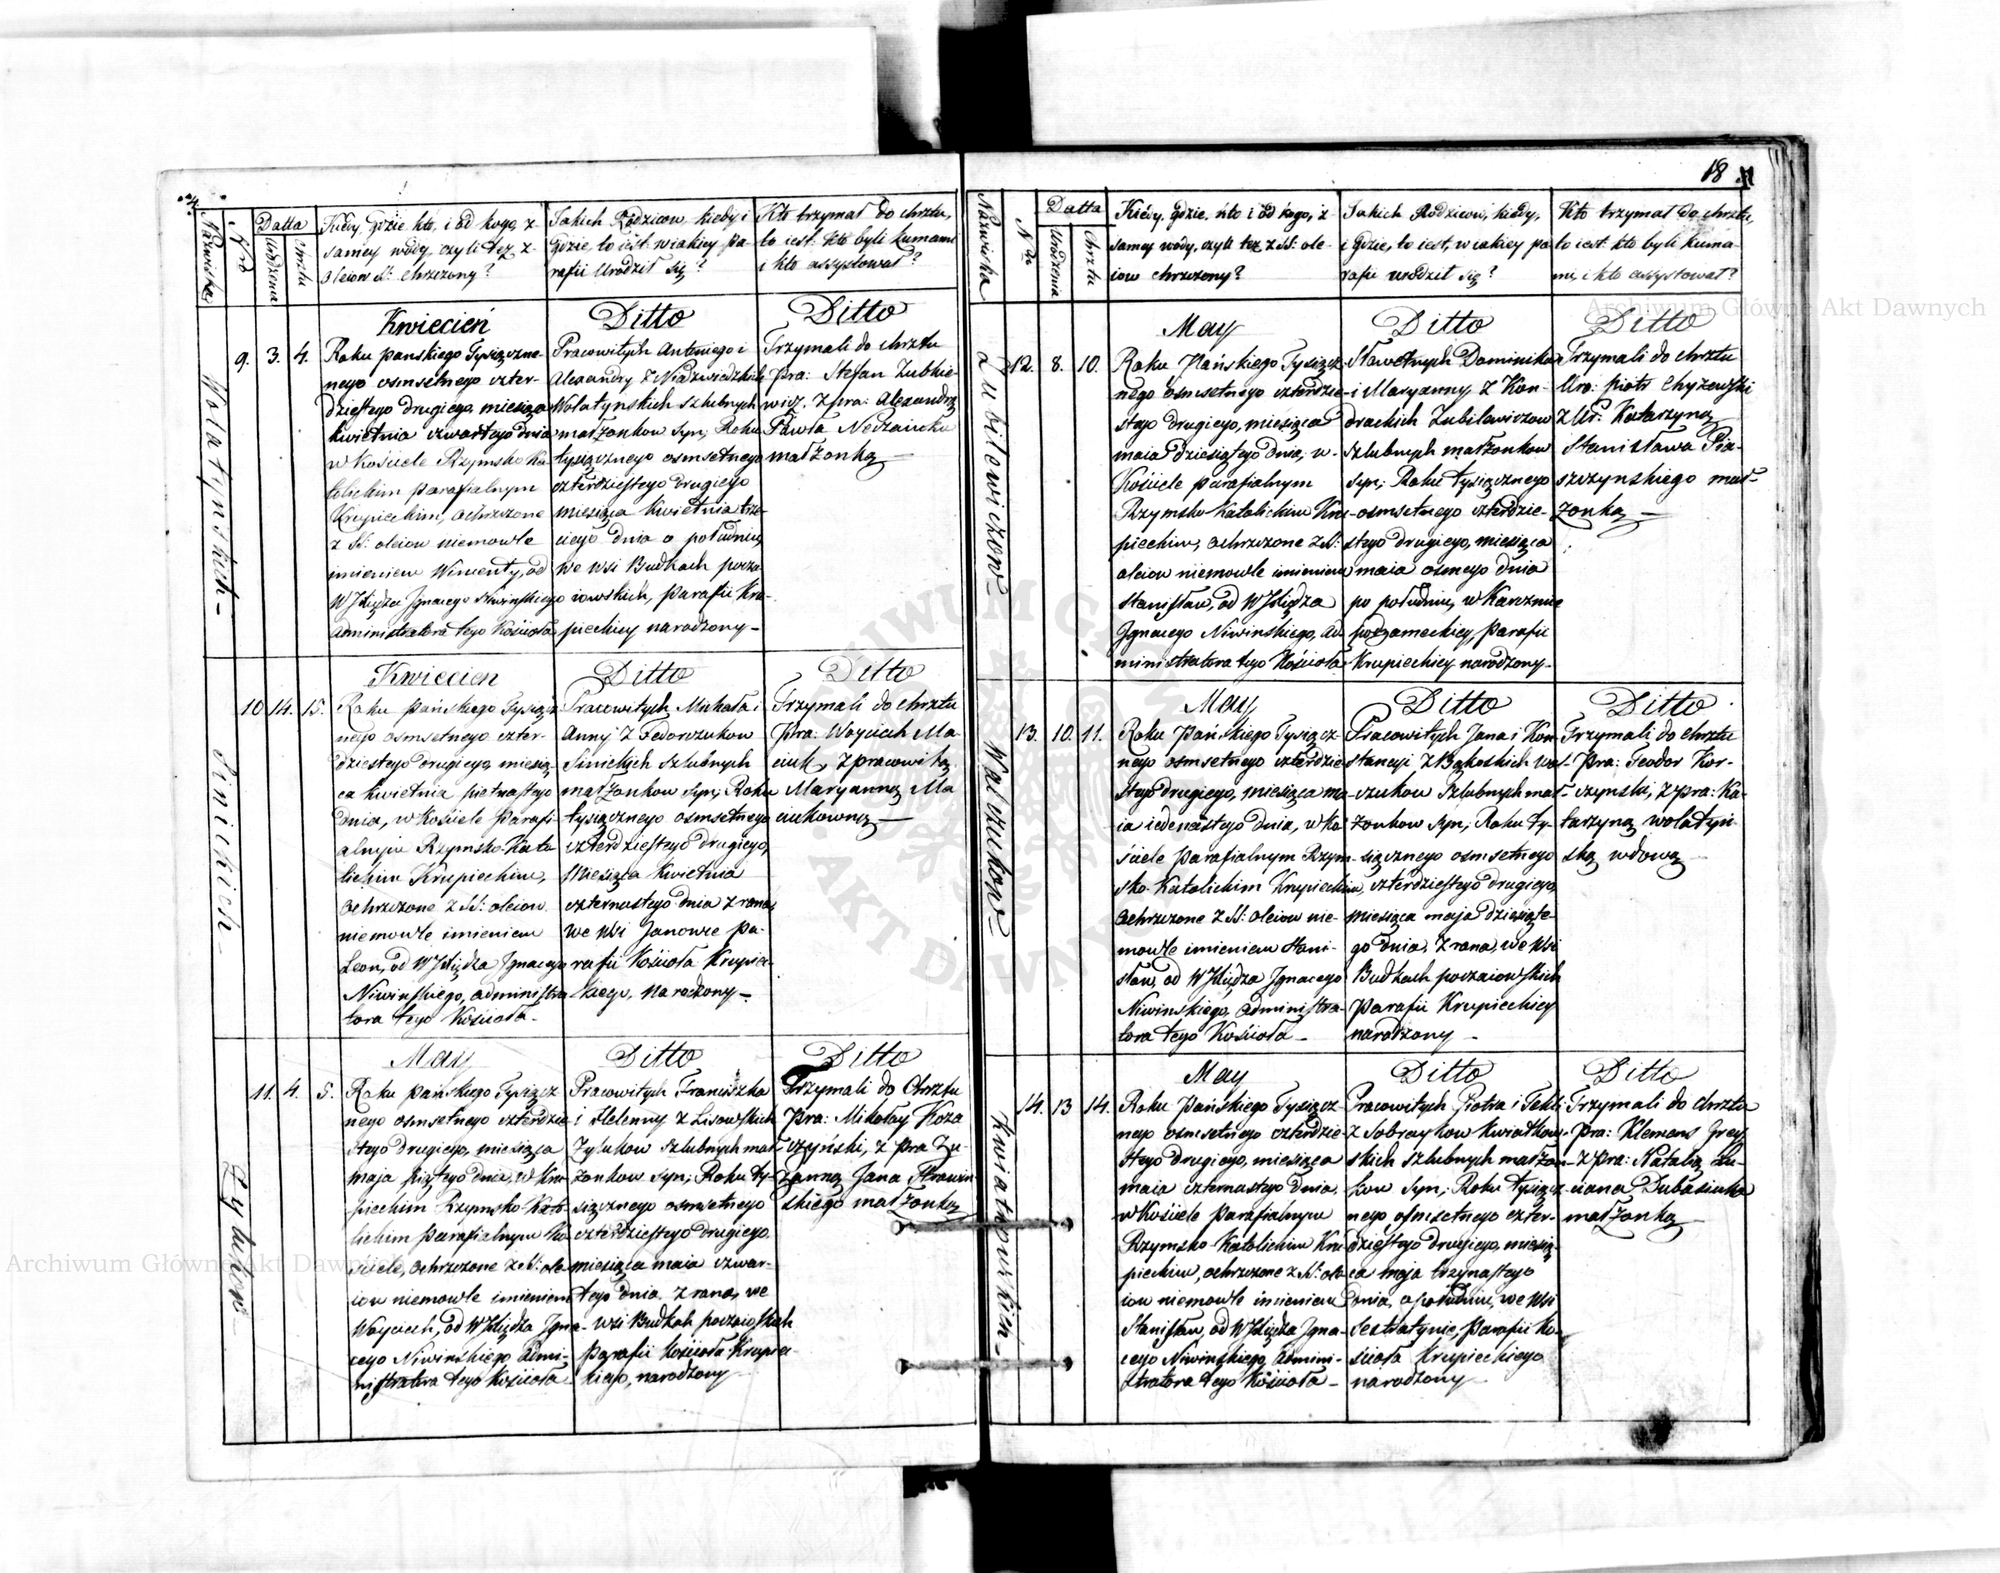 18
Nazwiska
Nro
Datta
Urodzenia
Chrztu
Kiedy, gdzie kto, i od kogo, z
samey wody czyli też z
Oleiow SS: chrzczony?
Jakich Rodzicow, kiedy i
gdzie, to iest w iakiey pa-
rafii Urodził się?
Kto trzymał do chrztu,
to iest: kto byli kumami
i kto assystował?
Wolatynskich
9. 3. 4.
Kwiecień
Roku pańskiego Tysiączne-
nego osmsetnego czter-
dziestego drugiego, miesiąca
kwietnia czwartego dnia
w Kościele Rzymsko Ka-
tolickim parafialnym
Krupieckim, ochrzczone
z SS: oleiow niemowle
imieniem Wincenty, od
W JXiędza Jgnacego Niwinskiego
administratora tego Kościoła
Ditto
Pracowitych Antoniego i
Alexandry z Niedzwiedzkich
Wolatynskich szlubnych
małżonkow syn; Roku
tysiącznego osmsetnego
czterdziestego drugiego
miesiąca Kwietnia trze-
ciego dnia o południu,
we wsi Budkach pocza-
iowskich, parafii Kru-
pieckiey narodzony-
Ditto
Trzymali do chrztu
Pra: Stefan Zubkie-
wicz, z pra: Alexandrą
Pawła Neczaiuka
małżonką
Sinickich
10 14. 15.
Kwiecien
Roku pańskiego Tysiącz-
nego osmsetnego czter-
dziestego drugiego, miesią-
ca kwietnia pietnastego
dnia, w Kościele Parafi-
alnym Rzymsko Kato-
lickim Krupieckim,
ochrzczone z SS: oleiow
niemowle imieniem
Leon, od W JXiędza Jgnacego
Niwinskiego, administra-
tora tego Kościoła-
Ditto
Pracowitych Michała i
Anny z Fedorczukow
Sinickich szlubnych
małżonkow syn; Roku
tysiącznego osmsetnego
czterdziestego drugiego,
Miesiąca Kwietnia
czternastego dnia z rana,
we wsi Janowce pa-
rafii Kościoła Krupiec-
kiego, narodzony-
Ditto
Trzymali do chrztu
Pra: Woyciech Ma-
ciuk, z pracowitą
Maryanną Ma
ciukowną
Zylukow
11. 4. 5.
May
Roku pańskiego Tysiącz
nego osmsetnego czterdzie
stego drugiego, miesiąca
maja piątego dnia, w Kru
pieckim Rzymsko-Kato-
lickim parafialnym Ko-
ściele, ochrzczone z SS: ole
iow niemowle imieniem
Woyciech, od W JXiędza Jgna-
cego Niwinskiego, Admi-
nistratora tego Kościoła
Ditto
Pracowitych Franciszka
i Helenny z Lisowskich
Zylukow szlubnych mał
żonkow syn; Roku ty-
siącznego osmsetnego
czterdziestego drugiego,
miesiąca maia czwar-
tego dnia z rana, we
wsi Budkach poczaiowskich
parafii Kościoła Krupiec-
kiego, narodzony
Ditto
Trzymali do Chrztu
Pra: Mikołay Koza
czyński, z pra Zu-
zanną Jana
skiego małżonką
Nazwiska
Nro
Datta
Urodzenia
Chrztu
Kiedy, gdzie, kto i od kogo, z
samey wody, czyli też z SS: ole-
iow chrzczony?
Jakich Rodzicow, kiedy,
i gdzie, to iest, w iakiey pa
rafii urodził się?
Kto trzymał do chrztu,
to iest: kto byli kuma-
mi, i kto assystował?
Zubilowiczow
12. 8. 10.
May
Roku Pańskiego Tysiącz
nego osmsetnego czterdzie-
stego drugiego, miesiąca
maia dziesiątego dnia, w-
Kościele parafialnym
Rzymsko-Katolickim Kru-
pieckim, ochrzczone z SS:
oleiow niemowle imieniem
Stanisław, od W JXiędza
Jgnacego Niwinskiego, ad
ministratora tego Kościoła
Ditto
Sławetnych Dominika
i Maryanny z Kon-
drackich Zubilewiczow
szlubnych małżonkow
syn; Roku tysiącznego
osmsetnego czterdzie-
stego drugiego, miesiąca
maia osmego dnia
po południu, w Karczmie
podzameckiey, parafii
Krupieckiey narodzony-
Ditto
Trzymali do chrztu
Uro: piotr Chyżewski
z Ur: Katarzyną
Stanisława Pia-
szczynskiego mał-
żonką
Walczukow
13. 10. 11.
May
Roku Pańskiego Tysiącz-
nego osmsetnego czterdzie
stego drugiego, miesiąca ma
ia iedenastego dnia, w Ko-
ściele parafialnym Rzym-
sko-Katolickim Krupieckim,
ochrzczone z SS: oleiow nie-
mowle imieniem Stani-
sław, od W JXiędza Jgnacego
Niwinskiego, administra-
tora tego Kościoła-
Ditto
Pracowitych Jana i Kon
stancyi z Bąkoskich Wal-
czukow szlubnych mał-
żonkow syn; Roku ty-
siącznego osmsetnego
czterdziestego drugiego,
miesiąca maja dziesiąte-
go dnia, z rana, we wsi
Budkach poczaiowskich
Parafii Krupieckiey
narodzony-
Ditto
Trzymali do chrztu
Pra: Teodor Kor-
czynski, z pra: Ka-
tarzyną wolatyń-
ską wdową
Kwiatkowskich
14. 13 14.
May
Roku Pańskiego Tysiącz-
nego osmsetnego czterdzie-
stego drugiego, miesiąca
maia czternastego dnia,
w Kościele parafialnym
Rzymsko-Katolickim Kru
pieckim, ochrzczone z SS: ole
iow niemowle imieniem
Stanisław, od W JXiędza Jgna-
cego Niwinskiego, admini-
stratora tego Kościoła-
Ditto
Pracowitych Piotra i Tekli
z Sobczykow Kwiatkow-
skich szlubnych małżon-
kow syn; Roku tysiącz
nego, osmsetnego czter-
dziestego drugiego, miesią-
ca maja trzynastego
dnia, o południu, we wsi
parafii Ko-
ścioła Krupieckiego
narodzony
Ditto
Trzymali do chrztu
Pra: Klemens Grey
z Pra: Natalią Lu-
ciana Dubasiuka
małżonką
Archiwum Główne Akt Dawnych
Archiwum Główne Akt Dawnych
ARCHIWUM GŁÓWNE
AKT DAWNYCH